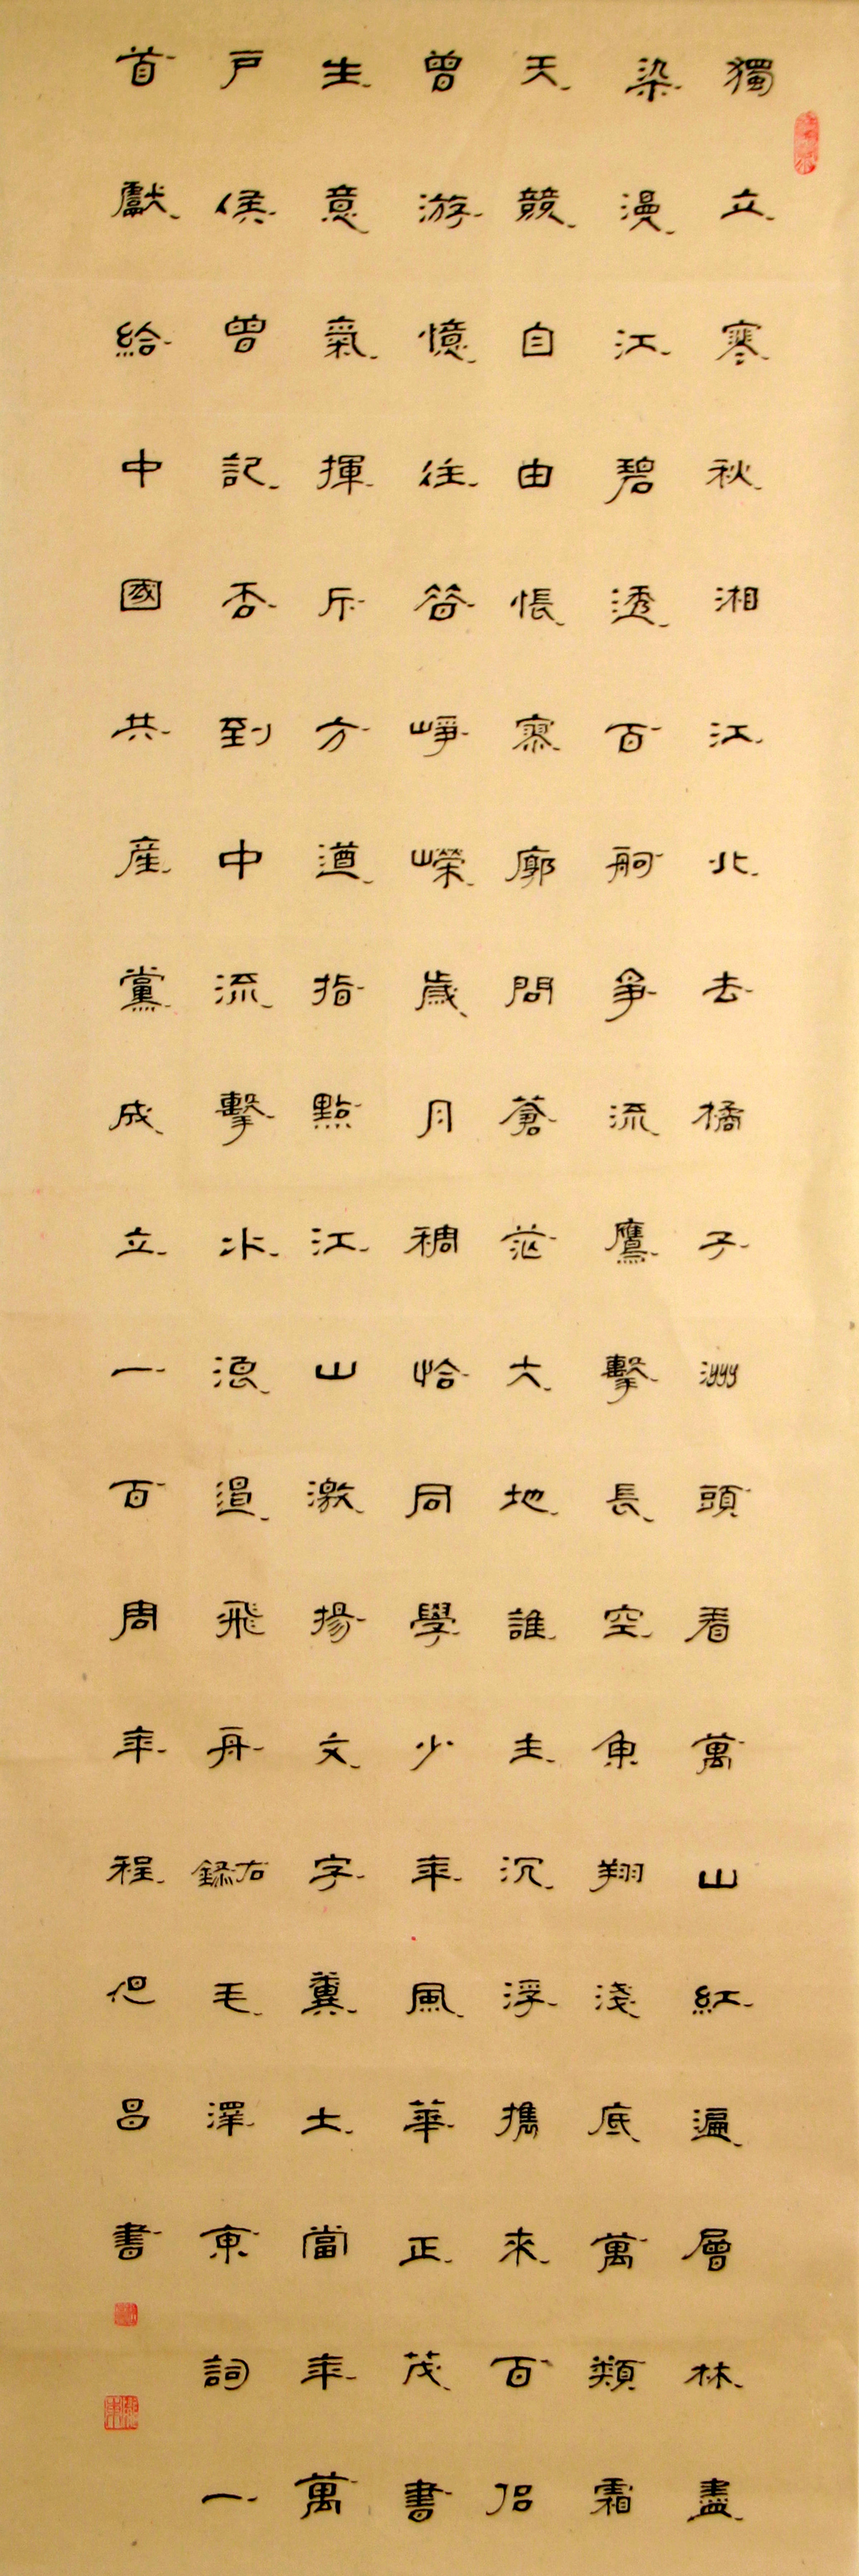 獨立寒秋湘江北去橘子洲頭看萬山紅遍層林盡
染漫江碧透百舸爭流鷹擊長空魚翔淺底萬類霜
天競自由悵寥廓問蒼茫大地誰主沉浮攜來百侶
曾游憶往昔崢嶸歲月稠恰同學少年風華正茂書
生意氣揮斥方遒指點江山激揚文字糞土當年萬
戶侯曾記否到中流擊水浪遏飛舟右錄毛澤東詞一
首獻給中國共産黨成立一百周年程昌書